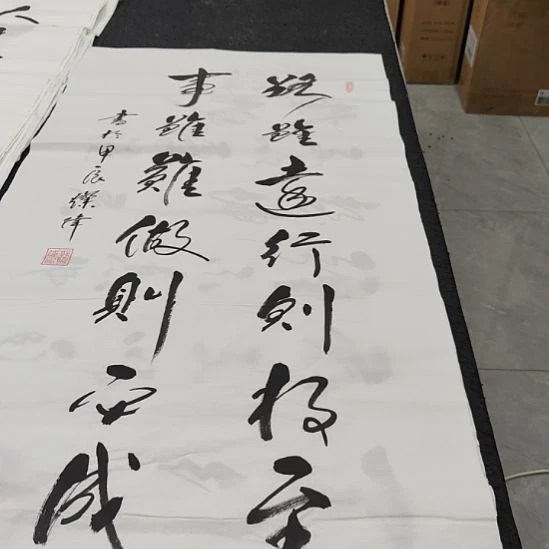 路雖遠行則将至
事雖難做則必成
書於甲辰